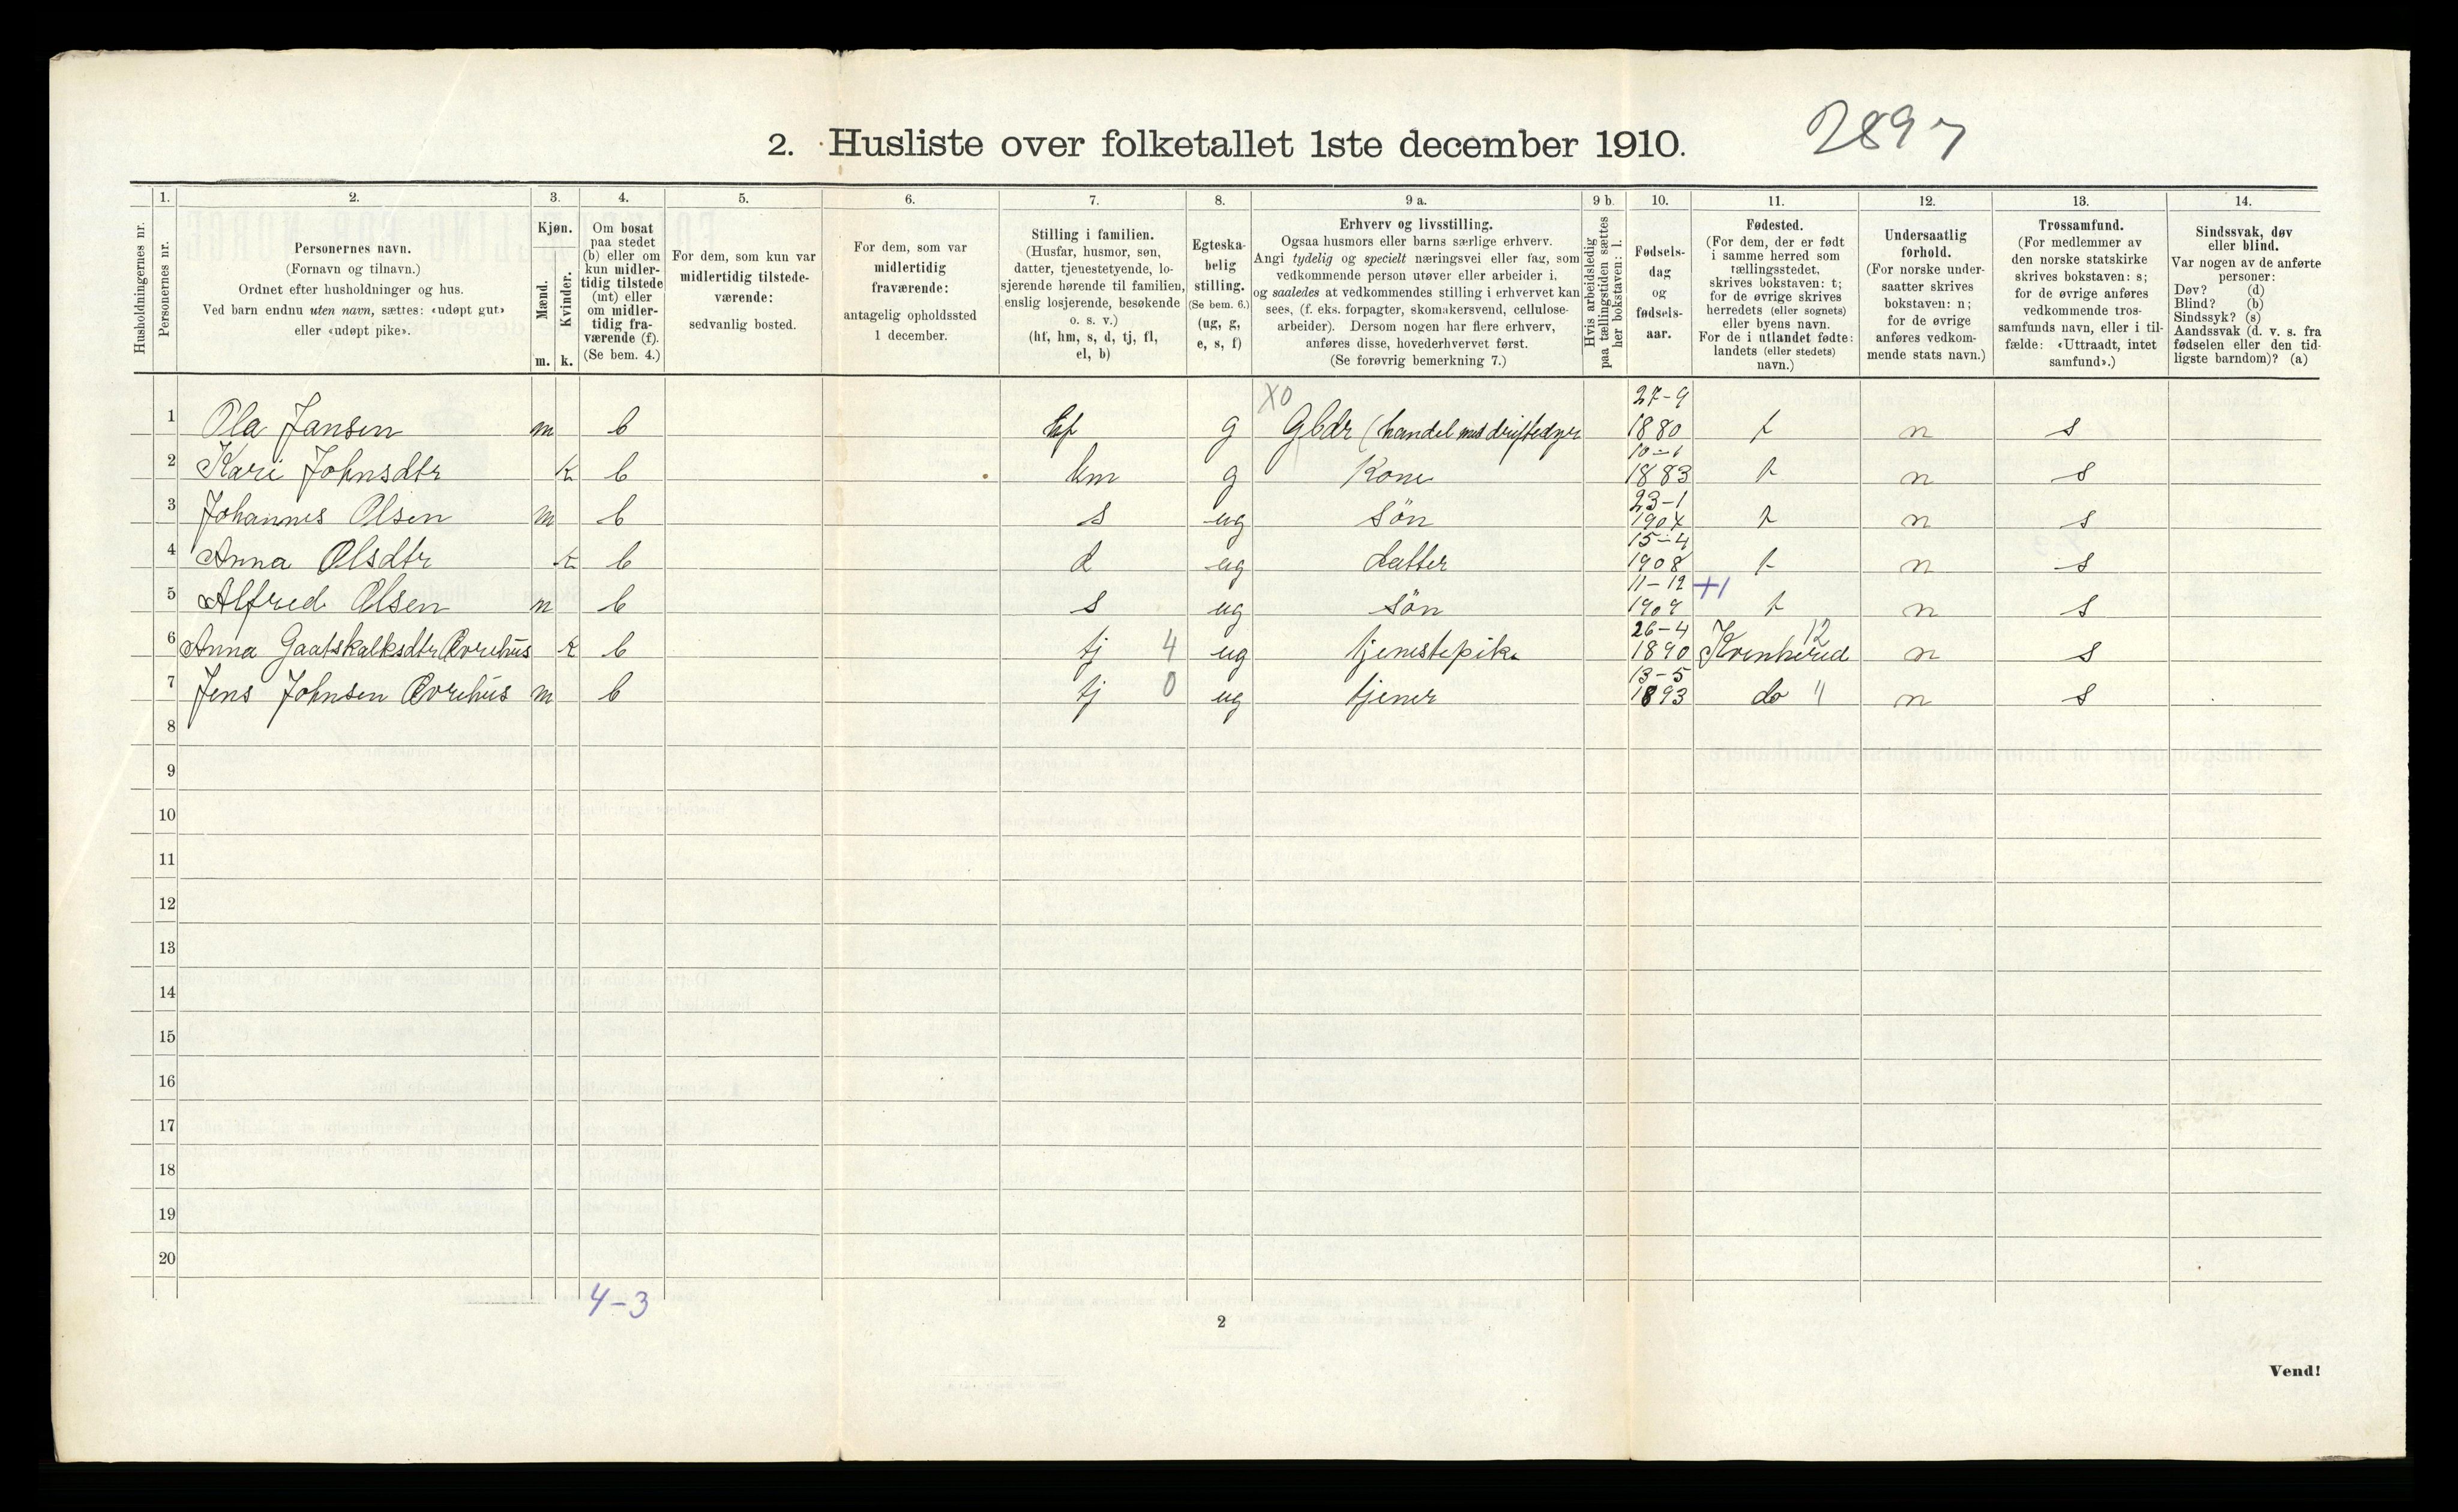 2. Husliste over folketallet 1ste december 1910.
2897
Husholdningernes nr.
1.
Personernes nr.
2.
Personernes navn.
(Fornavn og tilnavn.)
Ordnet efter husholdninger og hus.
Ved barn endnu uten navn, sættes: «udøpt gut»
eller «udøpt pike».
3.
Kjøn.
Mænd.
Kvinder.
m. k.
4.
Om bosat
paa stedet
(b) eller om
kun midler-
tidig tilstede
(mt) eller
om midler-
tidig fra-
værende (f).
(Se bem. 4.)
5.
For dem, som kun var
midlertidig tilstede-
værende:
sedvanlig bosted.
6.
For dem, som var
midlertidig
fraværende:
antagelig opholdssted
1 december.
7.
Stilling i familien.
(Husfar, husmor, søn,
datter, tjenestetyende, lo-
sjerende hørende til familien,
enslig losjerende, besøkende
o. s. v.)
(hf, hm, s, d, tj, fl,
el, b)
8.
Egteska-
belig
stilling.
(Se bem. 6.)
(ug, g,
e, s, f)
9 a.
Erhverv og livsstilling.
Ogsaa husmors eller barns særlige erhverv.
Angi tydelig og specielt næringsvei eller fag, som
vedkommende person utøver eller arbeider i,
og saaledes at vedkommendes stilling i erhvervet kan
sees, (f. eks. forpagter, skomakersvend, cellulose-
arbeider). Dersom nogen har flere erhverv,
anføres disse, hovederhvervet først.
(Se forøvrig bemerkning 7.)
9 b.
Hvis arbeidsledig
paa tællingstiden sættes
her bokstaven: l.
10.
Fødsels-
dag
og
fødsels-
aar.
11.
Fødested.
(For dem, der er født
i samme herred som
tællingsstedet,
skrives bokstaven: t;
for de øvrige skrives
herredets (eller sognets)
eller byens navn.
For de i utlandet fødte:
landets (eller stedets)
navn.)
12.
Undersaatlig
forhold.
(For norske under-
saatter skrives
bokstaven: n;
for de øvrige
anføres vedkom-
mende stats navn.)
13.
Trossamfund.
(For medlemmer av
den norske statskirke
skrives bokstaven: s;
for de øvrige anføres
vedkommende tros-
samfunds navn, eller i til-
fælde: «Uttraadt, intet
samfund».)
14.
Sindssvak, døv
eller blind.
Var nogen av de anførte
personer:
Døv? (d)
Blind? (b)
Sindssyk? (s)
Aandssvak (d. v. s. fra
fødselen eller den tid-
ligste barndom)? (a)
X0 27-9
1 Ola Jansen m b hf g Gbdr (handel med driftedyr 1880 t n s
10-1
2 Kari Johnsdtr k b hm g Kone 1883 t n s
23-1
3 Johannes Olsen m b s ug søn 1904 t n s
15-4
4 Anna Olsdtr k b d ug datter 1908 t n s
11-12 +1
5 Alfred Olsen m b s ug søn 1909 t n s
26-4 12
6 Anna Gaatskalksdtr Øvrehus k b tj 4 ug tjenestepike 1890 Kvinherred n s
13-5
7 Jens Johnsen Øvrehus m b tj 0 ug tjener 1893 do " n s
8
9
10
11
12
13
14
15
16
17
18
19
20
4-3
2
Vend!